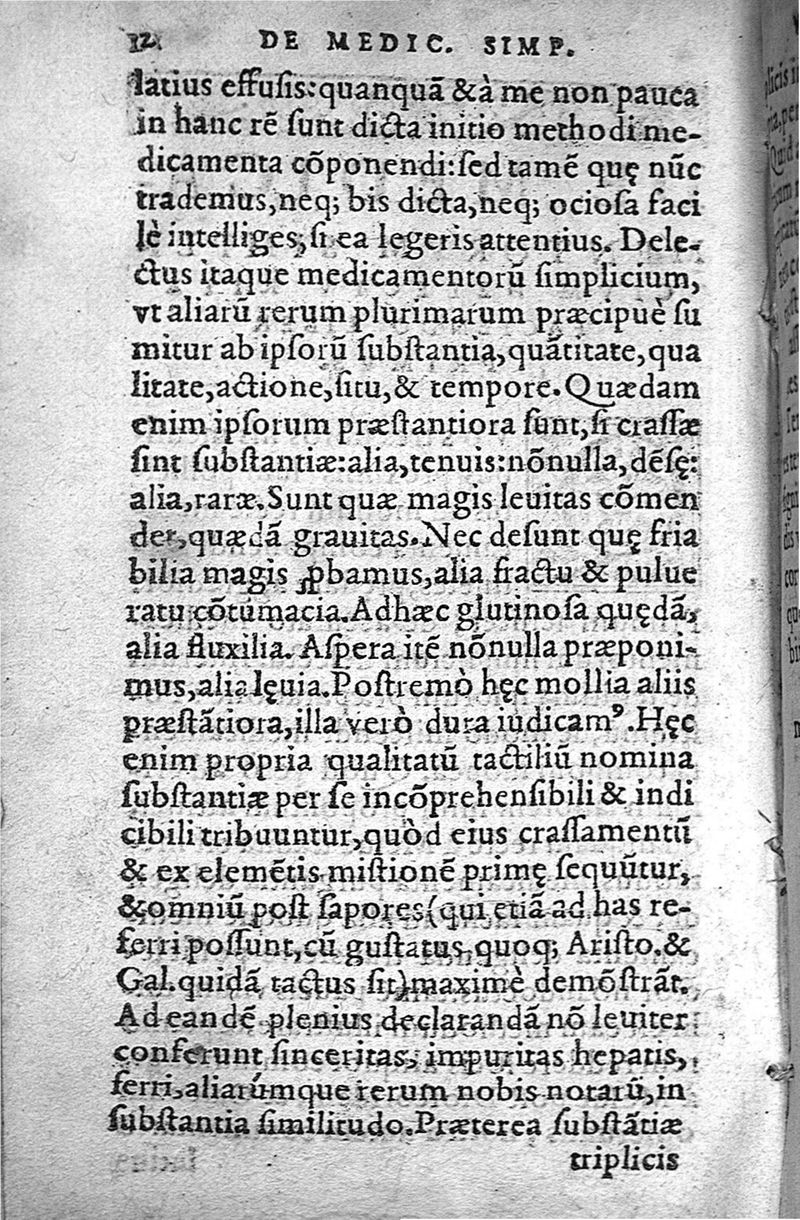 12 DE MEDIC. SIMP.
latius effusis: quanquã & à me non pauca
in hanc rẽ ſunt dicta initio methodi me-
dicamenta cõponendi: ſed tamẽ quę nũc
trademus, neq; bis dicta, neq; ocioſa faci
lè intelliges, ſi ea legeris attentius. Dele-
ctus itaque medicamentorũ ſimplicium,
vt aliarũ rerum plurimarum præcipuè ſu
mitur ab ipſorũ ſubſtantia, quãtitate, qua
litate, actione, ſitu, & tempore. Quædam
enim ipſorum præſtantiora ſunt, ſi craſſæ
ſint ſubſtantiæ: alia, tenuis: nõnulla, dẽſę:
alia, raræ. Sunt quæ magis leuitas cõmen
det, quædã grauitas. Nec deſunt quę fria
bilia magis ꝓbamus, alia fractu & pulue
ratu cõtumacia. Adhæc glutinoſa quędã,
alia fluxilia. Aſpera itẽ nõnulla præponi-
mus, alia lęuia. Poſtremò hęc mollia aliis
præſtãtiora, illa verò dura iudicamꝰ. Hęc
enim propria qualitatũ tactiliũ nomina
ſubſtantiæ per ſe incõprehenſibili & indi
cibili tribuuntur, quòd eius craſſamentũ
& ex elemẽtis miſtionẽ primę ſequũtur,
& omniũ poſt ſapores (qui etiã ad has re-
ferri poſſunt, cũ guſtatus quoq; Ariſto. &
Gal. quidã tactus ſit) maximè demõſtrãt.
Ad eandẽ plenius declarandã nõ leuiter
conferunt ſinceritas, impuritas hepatis,
ferri, aliarúmque rerum nobis notarũ, in
ſubſtantia ſimilitudo. Præterea ſubſtãtiæ
triplicis